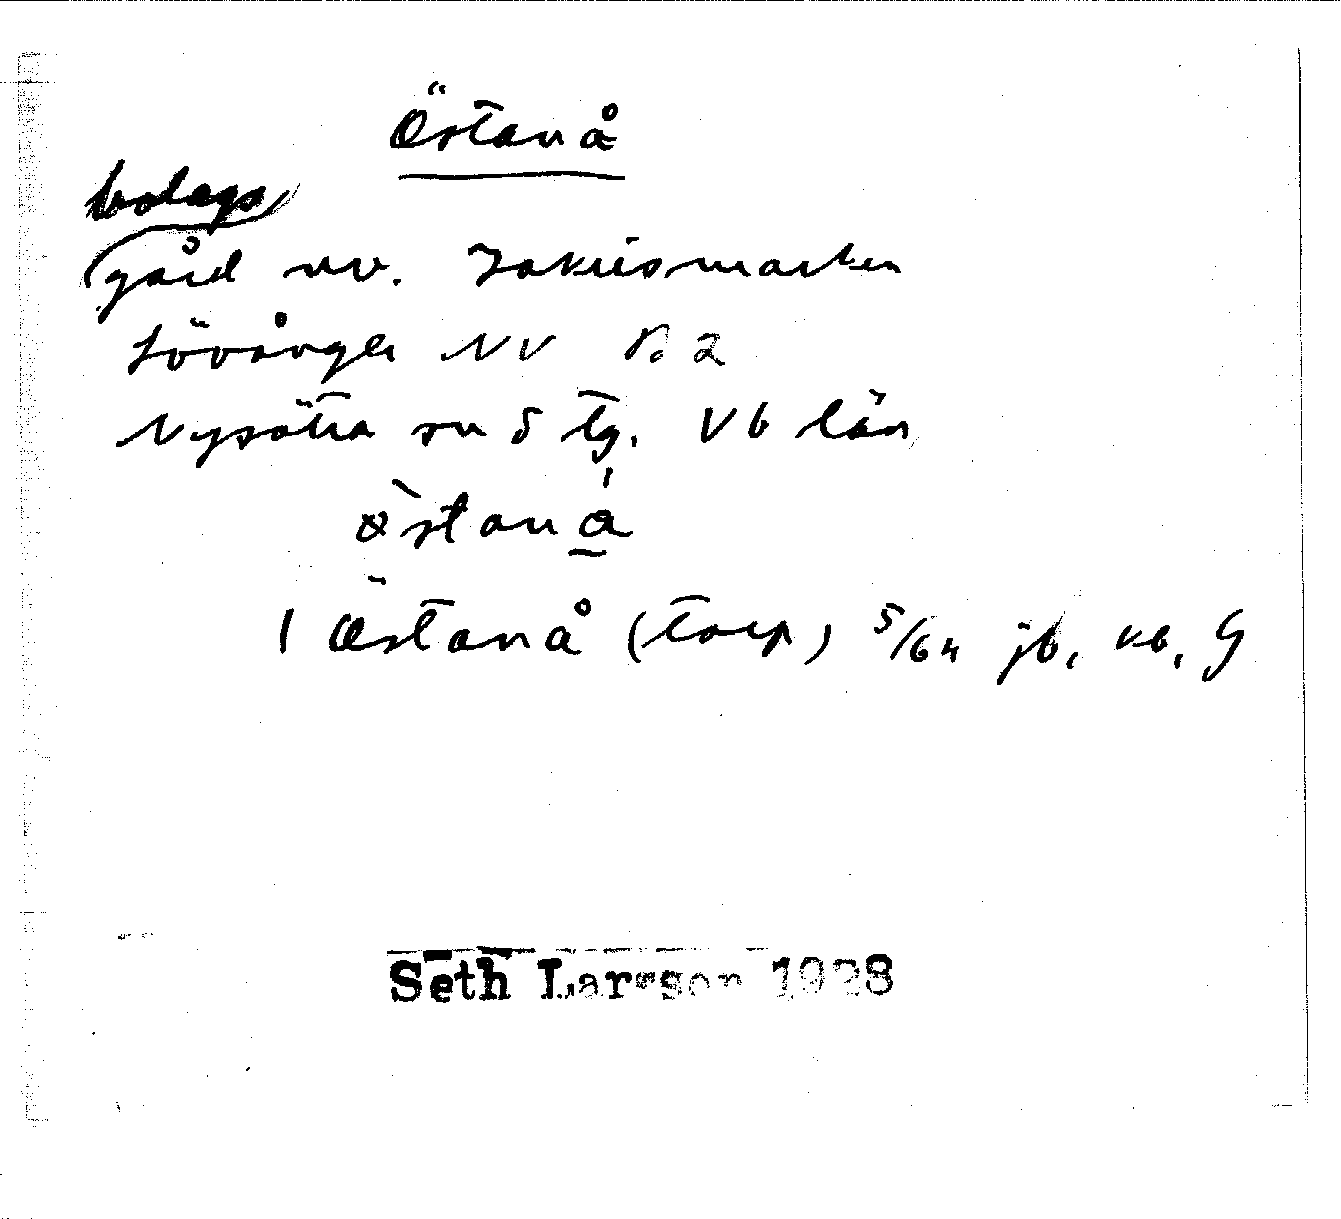 Östanå
bolags
gård nv. Jakrismarken
Lövånger NV r. 2
Nysätra sn S tg. Vb län
östanå
1 Östanå (torp) 5/64 jb, kb, G
Seth Larsson 1928